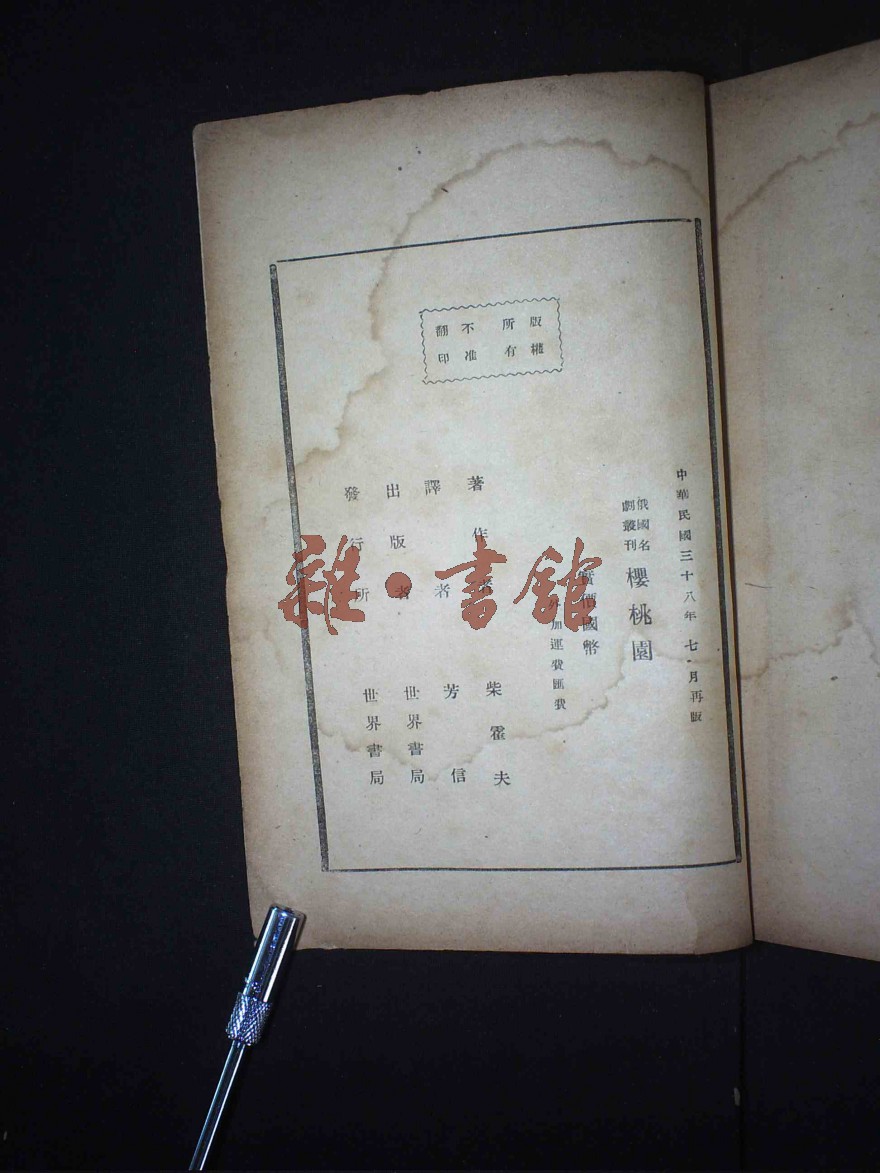 中華民國三十八年七月再版
俄國名
劇叢刊
櫻桃園
實價國幣
外加運費匯費
版權
所有
不准
翻印
著作者 柴霍夫
譯者 芳信
出版者 世界書局
發行所 世界書局
雜·書館